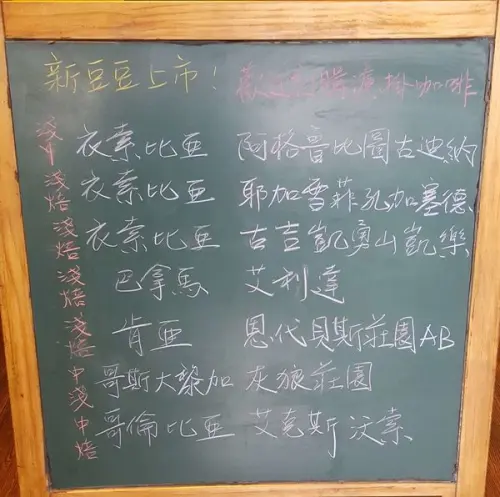 新豆豆上市! 歡迎 購濾掛咖啡
淺中 衣索比亞 阿格魯比圖古迪納
淺焙 衣索比亞 耶加雪菲孔加塞德
淺焙 衣索比亞 古吉凱勇山凱樂
淺焙 巴拿馬 艾利達
淺焙 肯亞 恩代貝斯莊園AB
中淺 哥斯大黎加 灰狼莊園
中焙 哥倫比亞 艾克斯 索